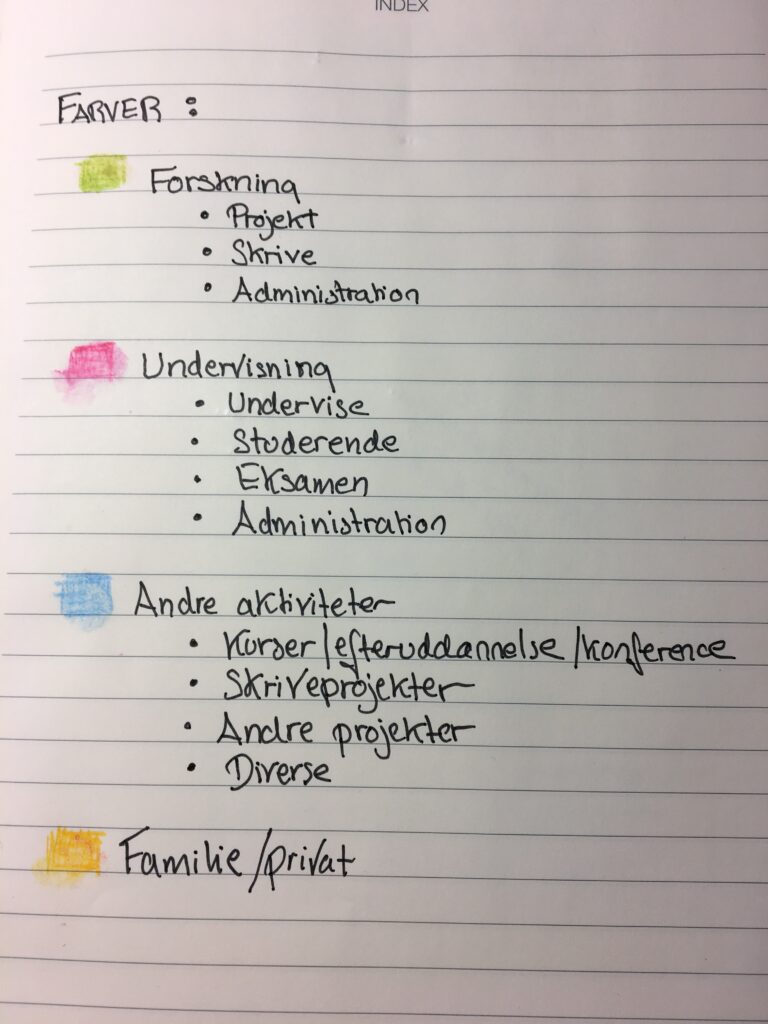 INDEX
FARVER :
Forskning
• Projekt
• Skrive
• Administration
Undervisning
• Undervise
• Studerende
• Eksamen
• Administration
Andre aktiviteter
• Kurser/efteruddannelse/konference
• Skriveprojekter
• Andre projekter
• Diverse
Familie/privat